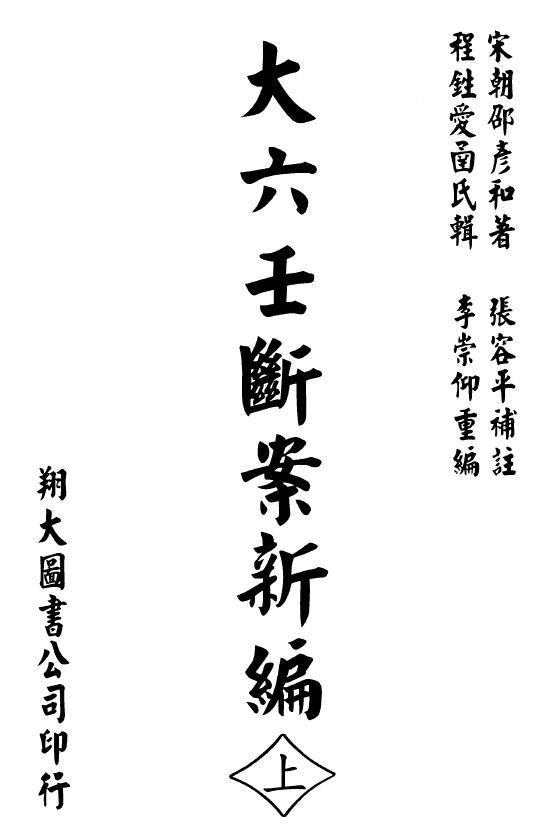 宋朝邵彥和著　張容平補註
程鉎愛函氏輯　李崇仰重編
大六壬斷案新編
上
翔大圖書公司印行